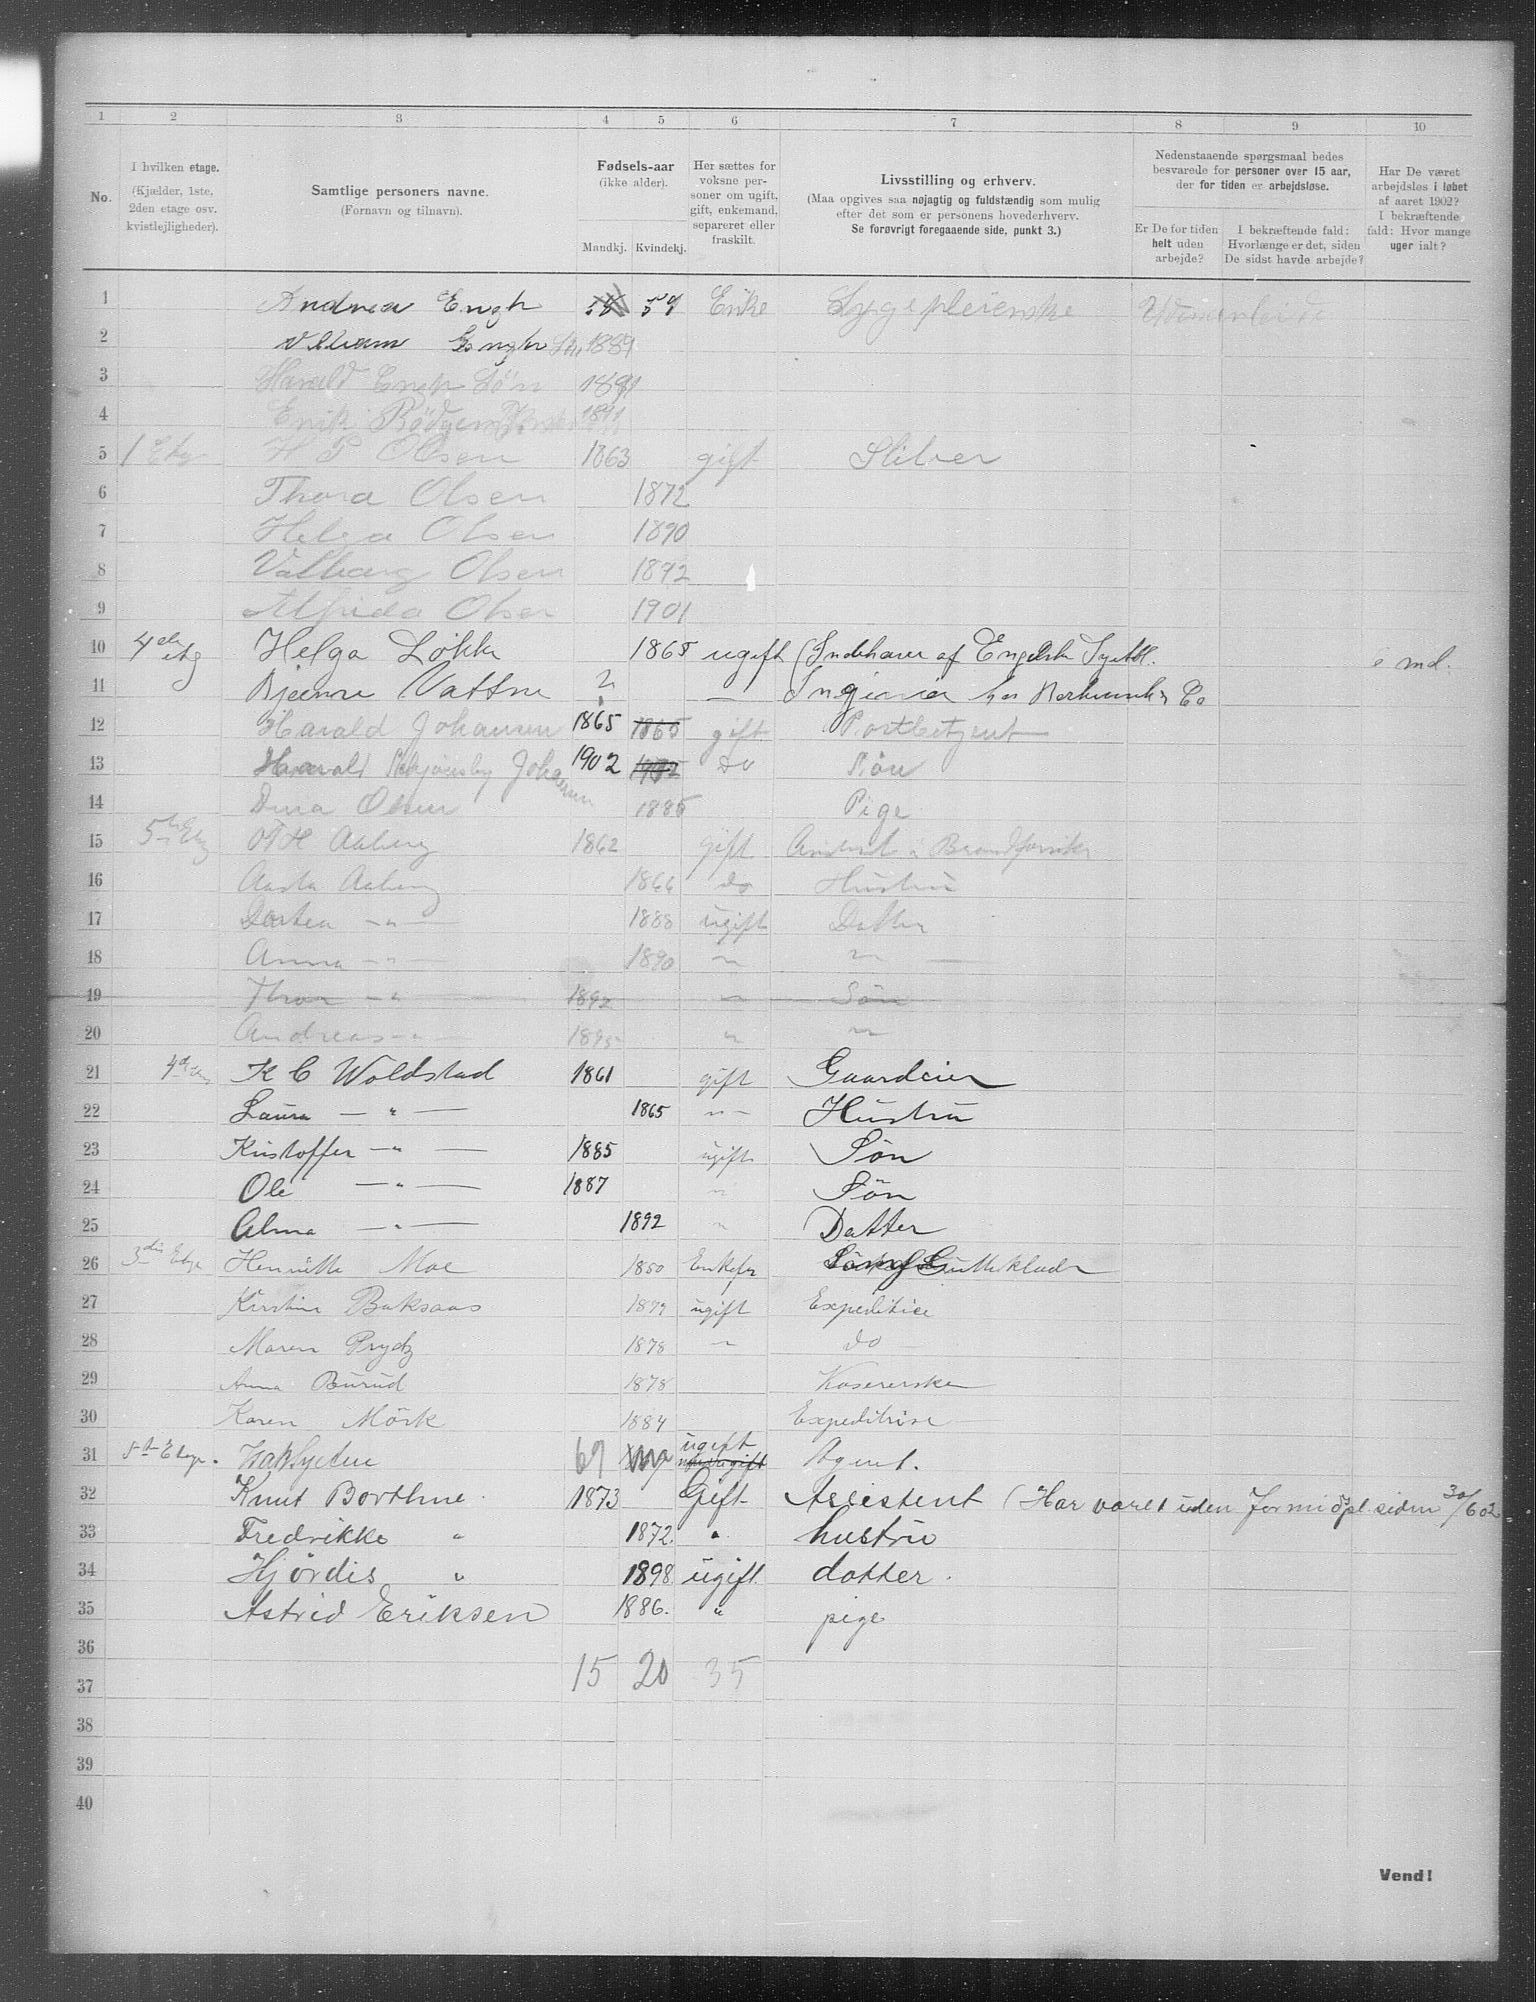 1 2 3 4 5 6 7 8 9 10
No.
I hvilken etage.
(Kjælder, 1ste,
2den etage osv.
kvistlejligheder).
Samtlige personers navne.
(Fornavn og tilnavn).
Fødsels-aar
(ikke alder).
Mandkj. Kvindekj.
Her sættes for
voksne per-
soner om ugift,
gift, enkemand,
separeret eller
fraskilt.
Livsstilling og erhverv.
(Maa opgives saa nøjagtig og fuldstændig som mulig
efter det som er personens hovederhverv.
Se forøvrigt foregaaende side, punkt 3.)
Nedenstaaende spørgsmaal bedes
besvarede for personer over 15 aar,
der for tiden er arbejdsløse.
Er De for tiden
helt uden
arbejde?
I bekræftende fald:
Hvorlænge er det, siden
De sidst havde arbejde?
Har De været
arbejdsløs i løbet
af aaret 1902?
I bekræftende
fald: Hvor mange
uger ialt?
1 Andrea Engh 59 Enke Sygepleierske
2 Engh 1889
3 Harald Engh Søn 1891
4
5 1 Etg H P Olsen 1863 gift Sliber
6 Thora Olsen 1872
7 Helga Olsen 1890
8 Valborg Olsen 1892
9 Alfrida Olsen 1901
10 4de etg Helga Løkke 1865 ugift (Indehaver af Engelsk md.
11 Vattne — Co
12 Harald Johansen 1865 1865 gift
13 Harald Johansen 1902 1902 do Søn
14 Olsen 1885 Pige
15 5te Etg Aaberg 1862 gift
16 Aasta Aaberg 1866 do Hustru
17 Dortea —"— 1888 ugift Datter
18 Anna —"— 1890 " "
19 Thor —"— 1892 " Søn
20 Andreas —"— 1895 " "
21 4de K C Woldstad 1861 gift Gaardeier
22 Laura —"— 1865 " Hustru
23 Kristoffer —"— 1885 ugift Søn
24 Ole —"— 1887 " Søn
25 Alma —"— 1892 " Datter
26 3die Etge Henriette Moe 1850
27 Kirstine Baksaas ugift Expeditrice
28 Maren Prydz 1878 " do
29 Anna Burud 1878 Kasererske
30 Karen Mörk 1884 Expeditrise
31 5te Etage. 69 ugift Agent.
32 Knut Borthne 1873 Gift Assistent (Har været uden siden 30/6 02
33 Fredrikke " 1872. " hustru
34 Hjördis " 1898 ugift. datter.
35 Astrid Eriksen 1886. " pige
36
15 20 35
37
38
39
40
Vend!